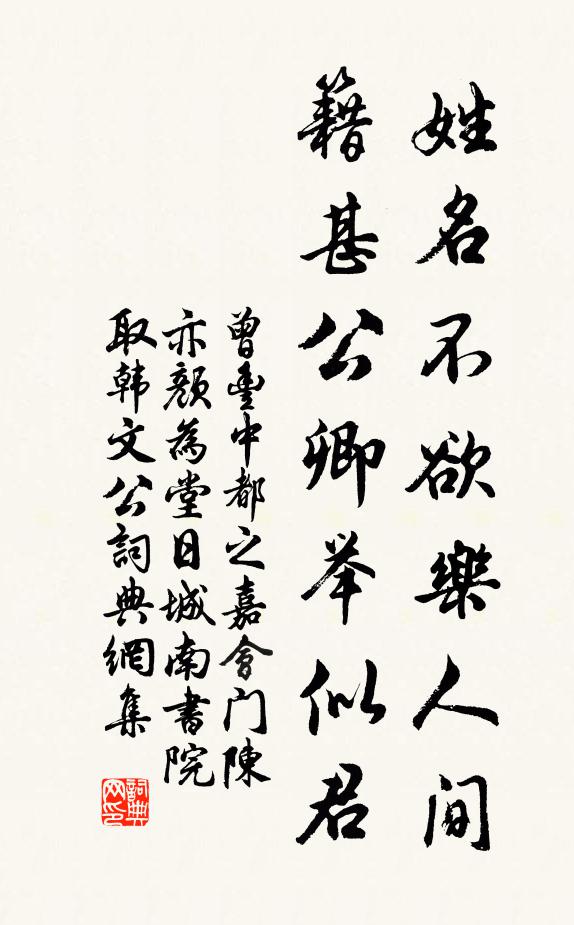 姓名不欲樂人间
籍甚公卿举似君
曾豊中都之嘉會门陳
亦顏為堂日城南書院
取韩文公詞典網集
詞典网印